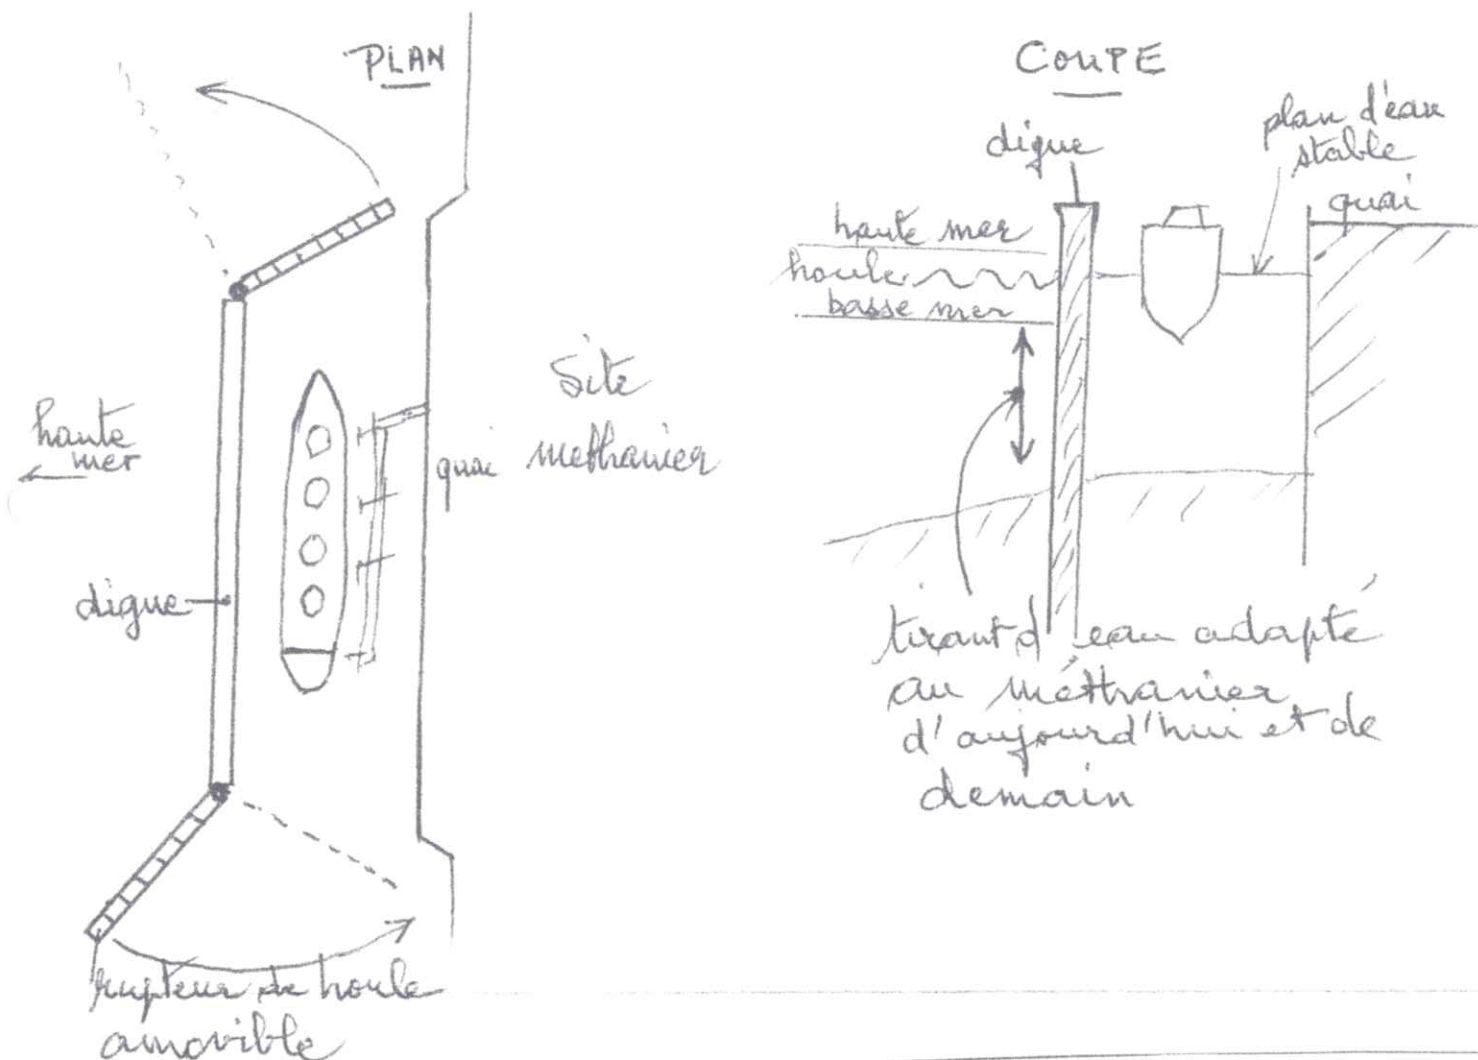 PLAN
haute
mer
digue
quai
Site
methanier
rupteur de houle
amovible
COUPE
digue
plan d'eau
stable
quai
haute mer
houle
basse mer
tirant d'eau adapté
au méthanier
d'aujourd'hui et de
demain